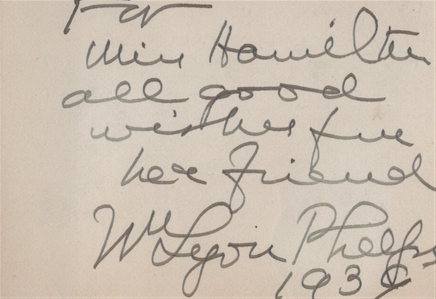 For
Miss Hamilton
all good
wishes from
her friend
Wm Lyon Phelps
1934